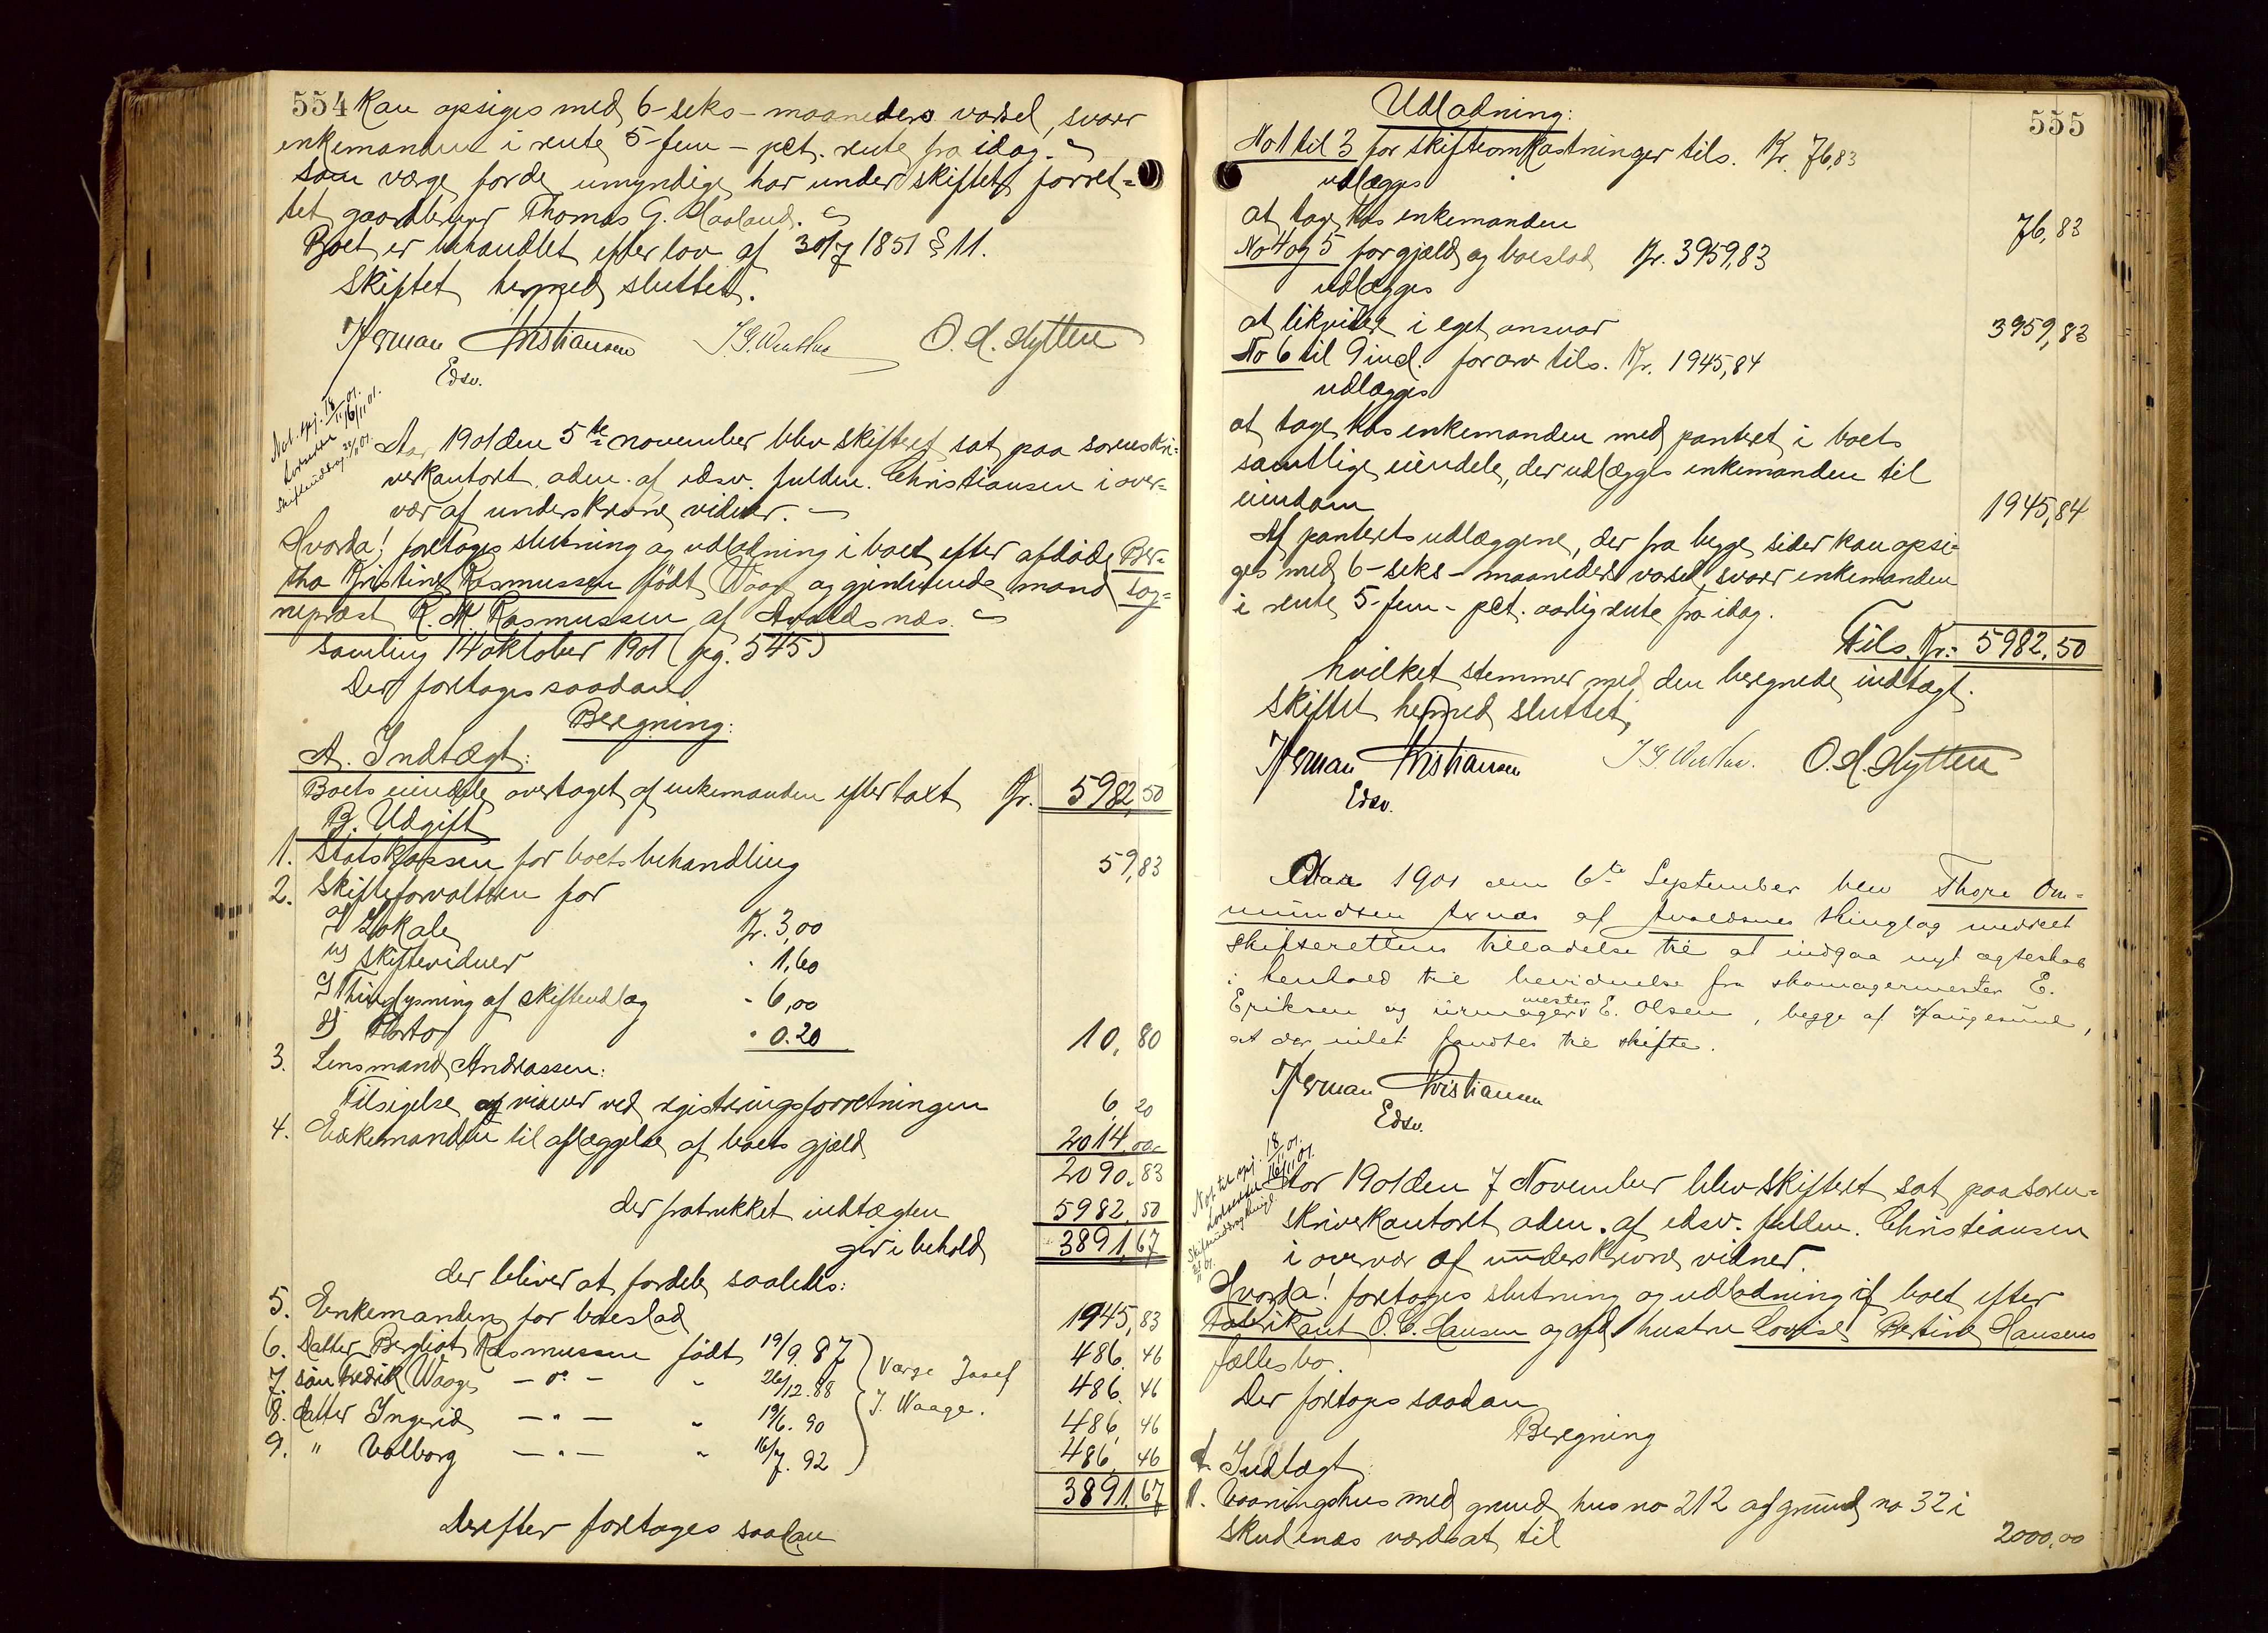 554 Kan opsiges med 6-seks-maaneders varsel, svarer
enkemanden i rente 5-fem-pct. rente fra idag.
Som værge for de umyndige har under skiftet forret-
tet gaardbruger Thomas G. Haaland.
Boet er behandlet efter lov af 30/7 1851 § 11.
Skiftet hermed sluttet.
Herman Christiansen O. H. Hytten
Edsv.
Aar 1901 den 5te november blev skifteret sat paa sorenskri-
verkontoret, adm. af edsv. fuldm. Christiansen i over-
vær af underskrevne vidner.
Hvorda! foretoges slutning og udlodning i boet efter afdøde Ber-
tha Kristine Rasmussen født Waage og gjenlevende mand sog-
neprest R. M. Rasmussen af Avaldsnes.
Samling 14 oktober 1901 (pg. 545)
Der foretoges saadan
Beregning:
A. Indtægt:
Boets eiendele overtaget af enkemanden efter taxt Kr. 5982,50
B. Udgift
1. Statskassen for boets behandling 59,83
2. Skifteforvalteren for
a) Lokale Kr. 3,00
b) Skiftevidner " 1,60
c) Thinglysning af skifteudlæg " 6,00
d) Porto " 0.20 10,80
3. Lensmand Andreassen:
Tilsigelse af vidner ved registreringsforretningen 6,20
4. Enkemanden til aflæggelse af boets gjæld 2014,00
2090,83
der fratrukket indtægten 5982,50
giver i behold 3891,67
der bliver at fordele saaledes:
5. Enkemanden for boeslod 1945,83
6. Datter Bergliot Rasmussen født 19/9.87 Værge Josef 486,46
7. søn Fredrik Waage — do — " 26/12.88 J. Waage. 486,46
8. datter Ingerid — " — " 19/6.90 486,46
9. " Valborg — " — " 16/7.92 486,46
3891,67
Derefter foretoges saadan
555
Udlodning:
No 1 til 3 for skifteomkostninger tils. Kr. 76,83
udlægges
at tage hos enkemanden 76,83
No 4 og 5 for gjæld og boeslod Kr. 3959,83
udlægges
at likvidere i eget ansvar 3959,83
No 6 til 9 incl. for arv tils. Kr. 1945,84
udlægges
at tage hos enkemanden med panteret i boets
samtlige eiendele, der udlægges enkemanden til
eiendom 1945,84
Af panteretsudlæggene, der fra begge sider kan opsi-
ges med 6-seks-maaneders varsel, svarer enkemanden
i rente 5-fem-pct. aarlig rente fra idag.
Tils. Kr. 5982,50
hvilket stemmer med den beregnede indtægt.
Skiftet hermed sluttet.
Herman Christiansen O. H. Hytten
Edsv.
Aar 1901 den 6te September blev Thore Om-
mundsen Axnes af Avaldsnes thinglag meddelt
skifterettens tilladelse til at indgaa nyt ægteskab
i henhold til bevidnelse fra skomagermester E.
Eriksen og urmagermester E. Olsen, begge af Haugesund,
at der intet fandtes til skifte.
Herman Christiansen
Edsv.
Aar 1901 den 7 November blev skifteret sat paa soren-
skriverkontoret adm. af edsv. fuldm. Christiansen
i overvær af underskrevne vidner.
Hvorda! foretoges slutning og udlodning i boet efter
Fabrikant O. C. Hansen og afd. hustru Lovise Bertine Hansens
fællesbo.
Der foretoges saadan
Beregning
A. Indtægt:
1. Vaaningshus med grund hus no 212 af grund no 32 i
Skudenes værdsat til 2000,00